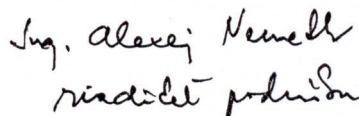 Ing. Alexej Nemeth
riaditeľ podniku